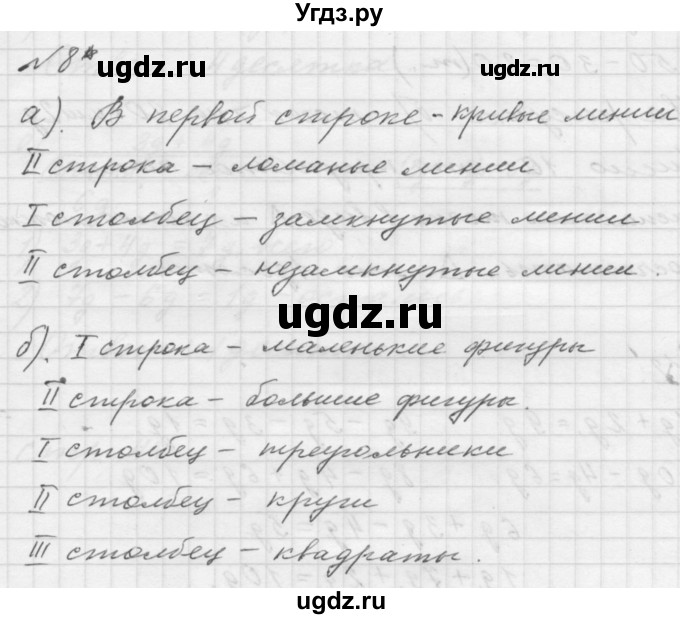 Угдз.ру
№8*
ugdz.ru ugdz.ru
а). В первой строке - кривые линии
II строка – ломаные линии
I столбец – замкнутые линии
II столбец – незамкнутые линии.
ugdz.ru
б). I строка – маленькие фигуры
II строка – большие фигуры.
I столбец – треугольники
II столбец – круги
III столбец – квадраты.
ugdz.ru